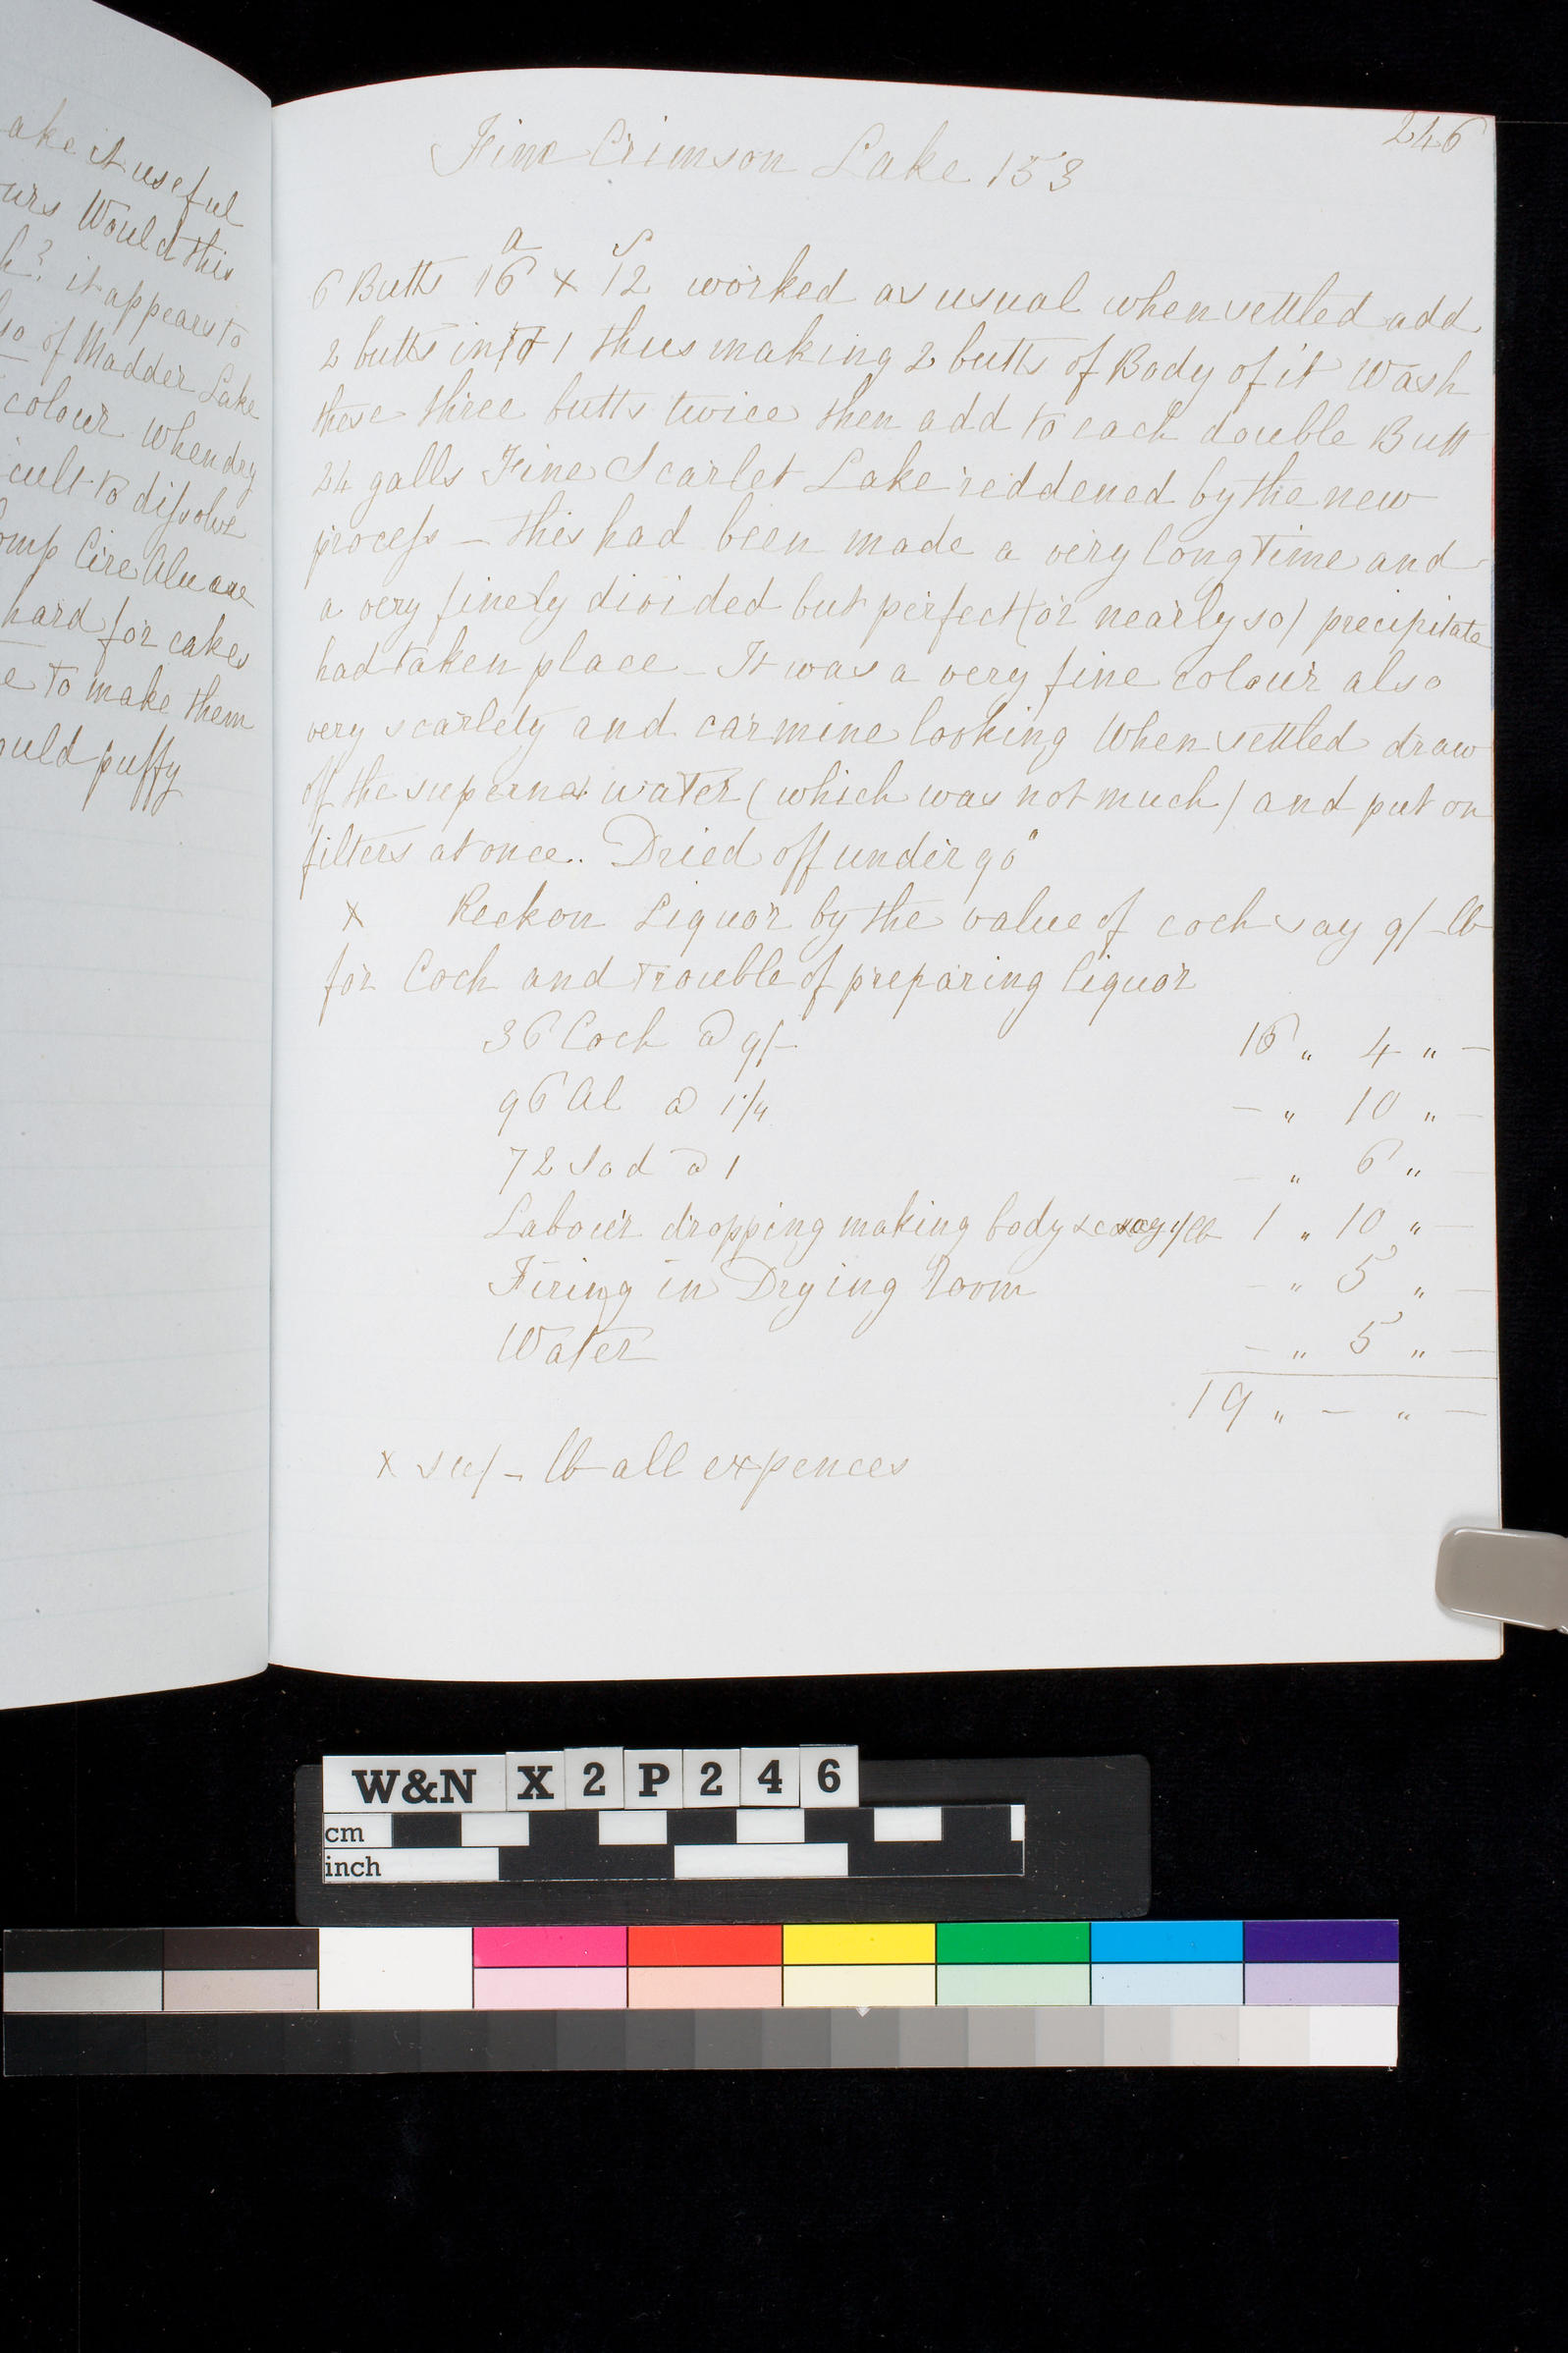 ake it useful
urs Would this
h? it appears to
so of Madder Lake
colour when dry
icult to dissolve
omp Cire Alu are
hard for cakes
e to make them
ould puffy
246
Fine Crimson Lake 153
a S
6 Butts 16 x 12 worked as usual when settled add
2 butts into 1 thus making 2 butts of Body of it Wash
these three butts twice then add to each double Butt
24 galls Fine Scarlet Lake reddened by the new
process – this had been made a very long time and
a very finely divided but perfect (or nearly so) precipitate
had taken place – It was a very fine colour also
very scarlety and carmine looking When settled draw
off the superna water (which was not much) and put on
filters at once.. Dried off under 90°
x Reckon Liquor by the value of coch say 9/- lb
for Coch and trouble of preparing liquor
36 Coch @ 9/- 16 " 4 " –
96 Al @ 1 1/4 – " 10 " –
72 Sod @ 1 – " 6 " –
Labour dropping making body &c say 1/ lb 1 " 10 " –
Firing in Drying Room – " 5 " –
Water – " 5 " –
19 " – " –
x lb all expences
W&N X2P246
cm
inch